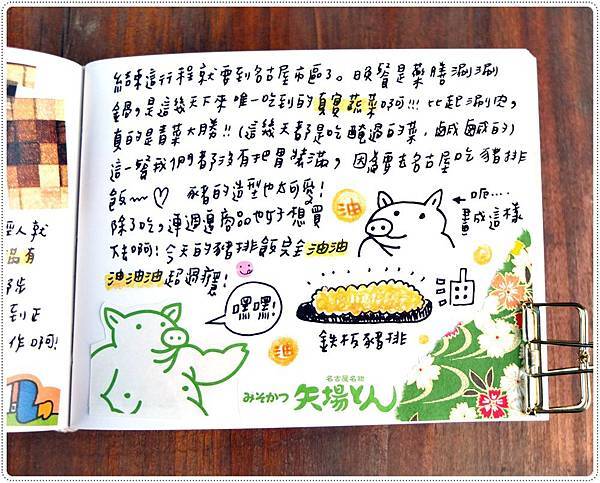 結束這行程就要到名古屋市區了。晚餐是藥膳涮涮
鍋，是這幾天下來唯一吃到的真實蔬菜啊!!! 比起涮肉，
真的是青菜大勝!! (這幾天都是吃醃過的菜，鹹鹹的)
這一餐我們都沒有把胃裝滿，因為要去名古屋吃豬排
飯~~♡ 豬的造型也太可愛!
除了吃，連週邊商品也好想買
啊! 今天的豬排飯完全油油
油油油超過癮!
油
← 呃....
畫成這樣
油
嘿嘿!
油
鉄板豬排
名古屋名物
みそかつ 矢場とん
人就
品有
到正
作啊!